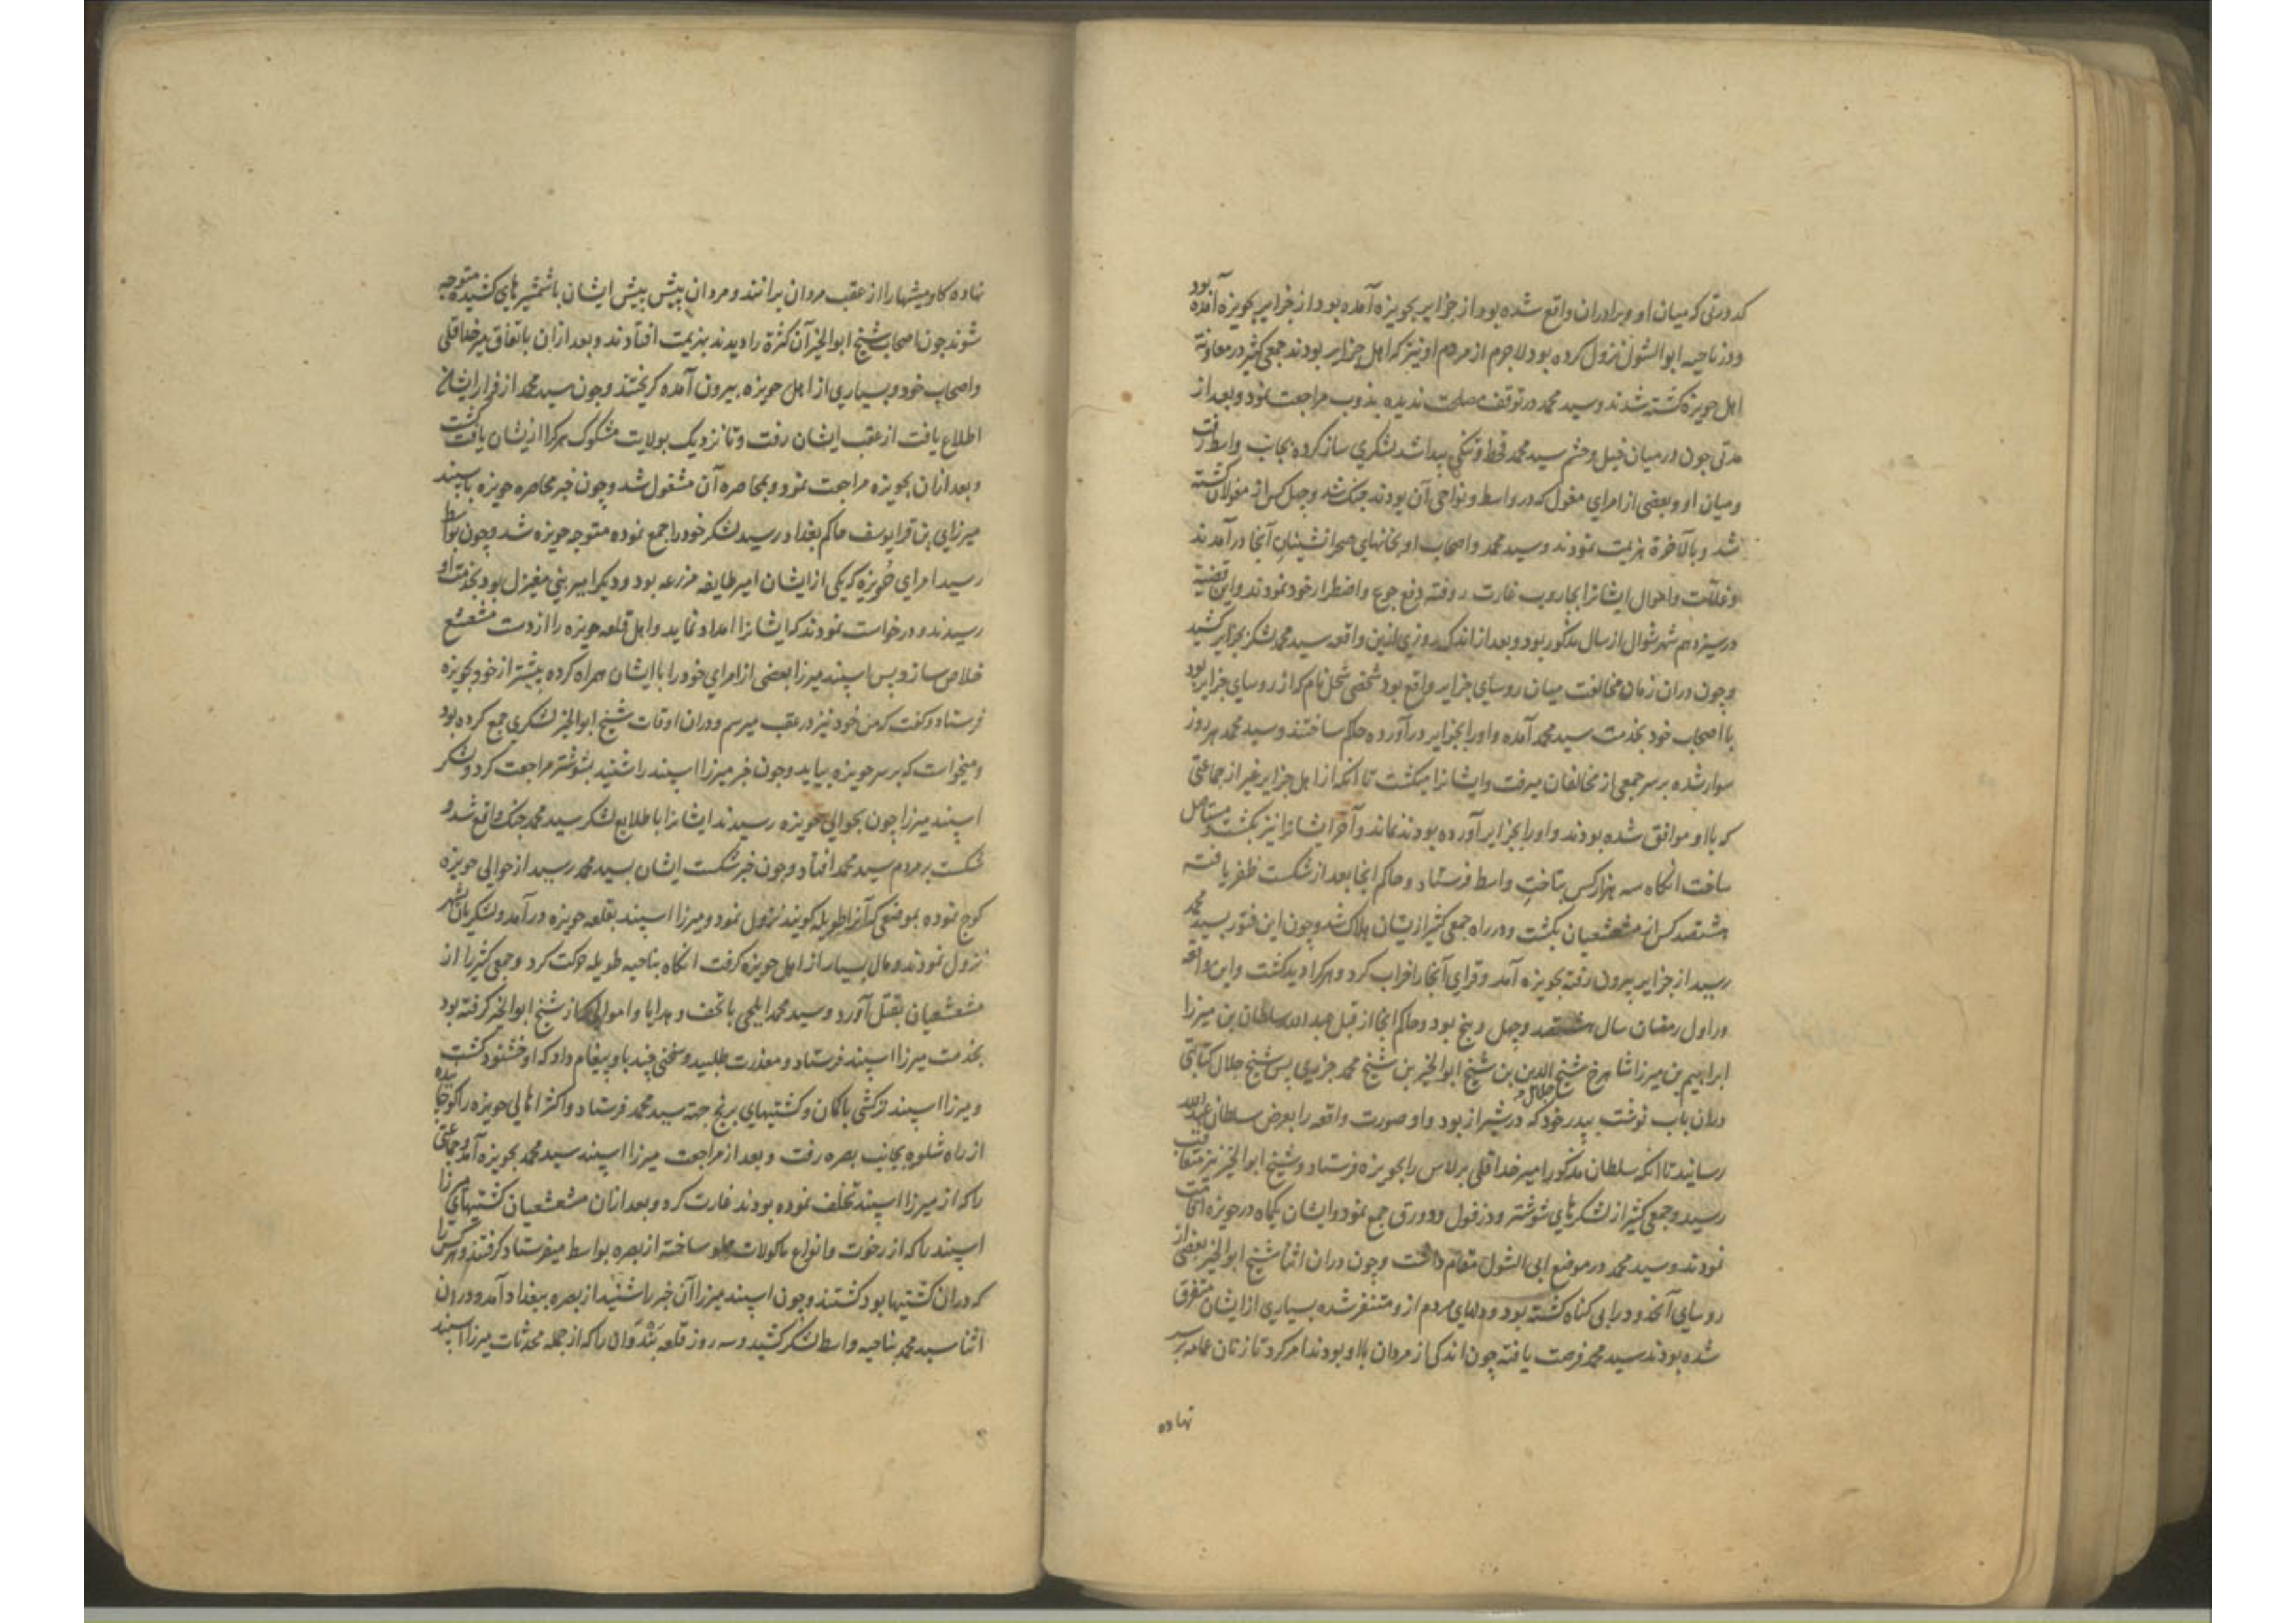 کدورتی که میان او و برادران واقع شده بود از جزایر بحویزه آمده بود از جزایر بحویزه آمده بود
و در ناحیه ابو الشول نزول کرده بود لاجرم از مردم او نیز که اهل جزایر بودند جمعی کثیر در معاونة
اهل حویزه کشته شدند و سید محمد در توقف مصلحت ندیده بدوب مراجعت نمود و بعد از
مدتی چون در میان خیل و حشم سید محمد قحط و تنکی پیدا شد لشکری ساز کرده بجانب واسط رفت
و میان او و بعضی از امرای مغول که در واسط و نواحی آن بودند جنک شد و چهل کس از مغولان کشته
شد و بالآخرة هزیمت نمودند و سید محمد و اصحاب او بخانهای صحرانشینان آنجا در آمدند
و غلات و اموال ایشانرا بجاروب غارت رفته دفع جوع و اضطرار خود نمودند و این قضیه
در سیزدهم شهر شوال از سال مذکور بود و بعد از اندک روزی ازین واقعه سید محمد لشکر بجزایر کشید
و چون دران زمان مخالفت میان روسای جزایر واقع بود شخصی شحل نام که از روسای جزایر بود
با اصحاب خود بخدمت سید محمد آمده و او را بجزایر در آورده حاکم ساختند و سید محمد هر روز
سوار شده بر سر جمعی از مخالفان میرفت و ایشانرا میکشت تا انکه از اهل جزایر غیر از جماعتی
که با او موافق شده بودند و او را بجزایر آورده بودند نماند و آخر ایشانرا نیز بکشت و مستاصل
ساخت انکاه سه هزار کس بتاخت واسط فرستاد و حاکم انجا بعد از شکست ظفر یافته
هشتصد کس از مشعشعیان بکشت و در راه جمعی کثیر از یشان هلاک شد و چون این فتور بسید محمد
رسید از جزایر بیرون رفته بحویزه آمد و قرای آنجا را خراب کرد و هرکرا دید کشت و این واقعه
در اول رمضان سال هشتصد و چهل و پنج بود و حاکم انجا از قبل عبد الله سلطان بن میرزا
ابراهیم بن میرزا شاهرخ شیخ جلال الدین بن شیخ ابو الخیر بن شیخ محمد جزیری پس شیخ جلال کتابتی
دران باب نوشت بپدر خود که در شیراز بود و او صورت واقعه را بعرض سلطان عبد الله
رسانید تا انکه سلطان مذکور امیر خدا قلی برلاس را بحویزه فرستاد و شیخ ابو الخیر نیز متعاقب
رسید و جمعی کثیر از لشکرهای شوشتر و دزفول و دورق جمع نمود و ایشان یکماه در حویزه اقامت
نمودند و سید محمد در موضع ابی الشول مقام داشت و چون دران اثنا شیخ ابو الخیر بعضی از
روسای آنحدود را بی کناه کشته بود و دلهای مردم از و متنفر شده بسیاری از ایشان متفرق
شده بودند سید محمد فرصت یافته چون اندکی از مردان با او بودند امر کرد تا زنان عمامه بر سر
نهاده
نهاده کاومیشها را از عقب مردان برانند و مردان پیش پیش ایشان با شمشیرهای کشیده متوجه
شوند چون اصحاب شیخ ابو الخیر آن کثرة را دیدند بهزیمت افتادند و بعد ازان باتفاق میر خدا قلی
و اصحاب خود و بسیاری از اهل حویزه بیرون آمده کریختند و چون سید محمد از فرار ایشان
اطلاع یافت از عقب ایشان رفت و تا نزدیک بولایت مشکوک هرکرا از یشان یافت کشت
و بعد ازان بحویزه مراجعت نمود و بمحاصره آن مشغول شد و چون خبر محاصره حویزه باسپند
میرزای بن قرا یوسف حاکم بغداد رسید لشکر خود را جمع نموده متوجه حویزه شد و چون بواسط
رسید امرای حویزه که یکی از ایشان امیر طایفه مزرعه بود و دیکر امیر بنی مغیزل بود بخدمت او
رسیدند و درخواست نمودند که ایشانرا امداد نماید و اهل قلعه حویزه را از دست مشعشع
خلاص سازد پس اسپند میرزا بعضی از امرای خود را با ایشان همراه کرده پیشتر از خود بحویزه
فرستاد و کفت که من خود نیز در عقب میرسم و دران اوقات شیخ ابو الخیر لشکری جمع کرده بود
و میخواست که بر سر حویزه بیاید و چون خبر میرزا اسپند را شنید بشوشتر مراجعت کرد و لشکر
اسپند میرزا چون بحوالی حویزه رسیدند ایشانرا با طلایع لشکر سید محمد جنک واقع شد و
شکست بر مردم سید محمد افتاد و چون خبر شکست ایشان بسید محمد رسید از حوالی حویزه
کوچ نموده بموضعی که آنرا طویله کویند نزول نمود و میرزا اسپند بقلعه حویزه در آمد و لشکریان بشهر
نزول نمودند و مال بسیار از اهل حویزه کرفت انکاه بناحیه طویله حرکت کرد و جمعی کثیر را از
مشعشعیان بقتل آورد و سید محمد ایلچی با تحف و هدایا و اموالی که از شیخ ابو الخیر کرفته بود
بخدمت میرزا اسپند فرستاد و معذرت طلبید و سخنی چند باو پیغام داد که او خشنود کشت
و میرزا اسپند ترکشی با کمان و کشتیهای برنج جهة سید محمد فرستاد و اکثر اهالی حویزه را کوچانیده
از راه شلوه بجانب بصره رفت و بعد از مراجعت میرزا اسپند سید محمد بحویزه آمد و جماعتی
را که از میرزا اسپند تخلف نموده بودند غارت کرد و بعد ازان مشعشعیان کشتیهای میرزا
اسپند را که از رخوت و انواع ماکولات مملو ساخته از بصره بواسط میفرستاد کرفتند و هر کس را
که دران کشتیها بود کشتند و چون اسپند میرزا آن خبر را شنید از بصره ببغداد آمد و دران
اثنا سید محمد بناحیه واسط لشکر کشید و سه روز قلعه بندوان را که از جمله محدثات میرزا اسپند